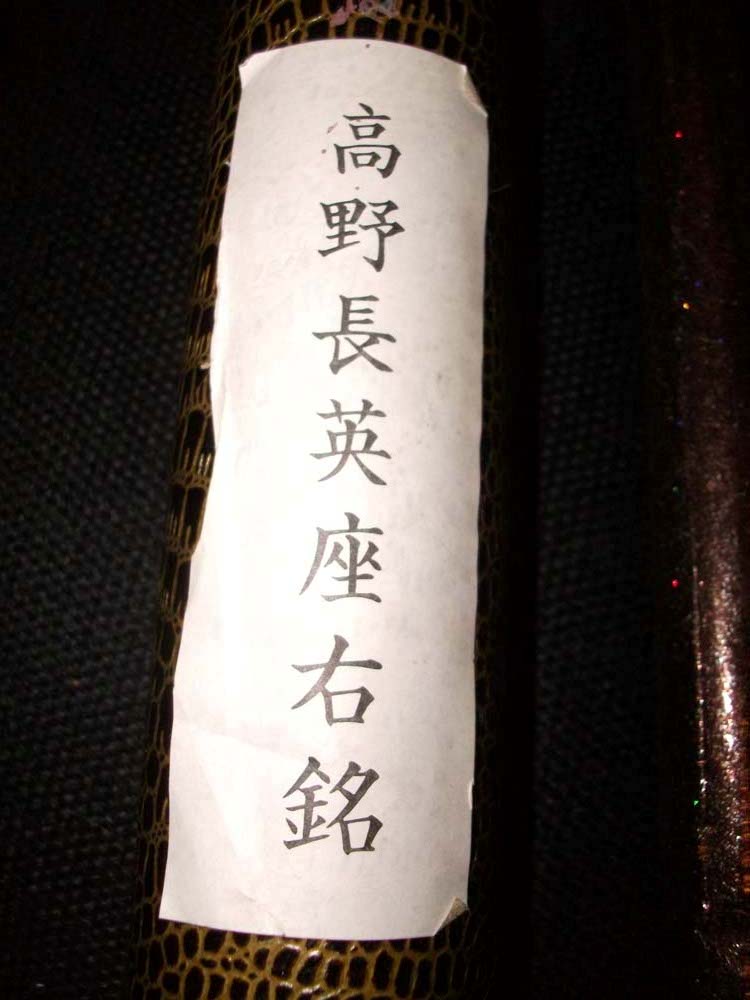 高野長英座右銘